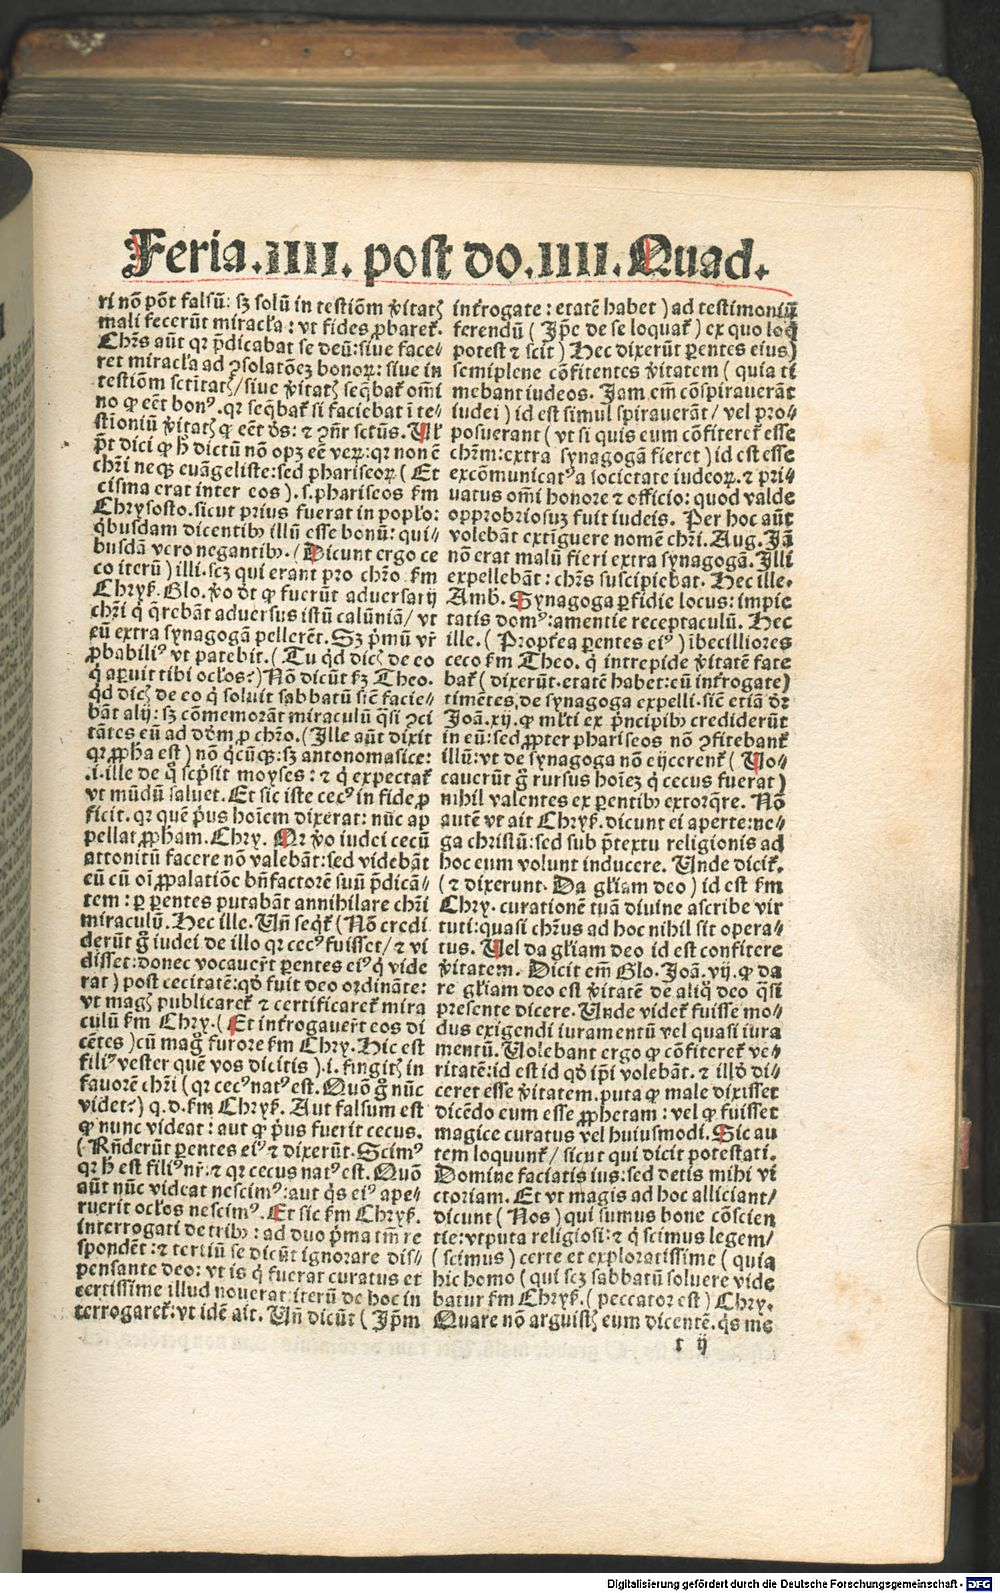 Feria.IIII. post do.IIII.Quad.
ri nõ põt falsũ: sꝫ solũ in testiõm v̾itatꝭ
mali fecerũt miracƚa: vt fides ꝓbareť.
Chrs̃ aũt qꝛ p̃dicabat se deũ: siue face⸗
ret miracƚa ad ꝯsolatõeꝫ bonoꝝ: siue in
testiõm sctĩtatꝭ/ siue v̾itatꝭ seq̃bať om̃i
no ꝙ eẽt bonꝰ. qꝛ seq̃bať si faciebat ĩ te⸗
stĩoniũ v̾itatꝭ ꝙ eẽt de᷒: ⁊ ꝯñr sctũs. Uƚ
p̃t dici ꝙ h̃ dictũ nõ opꝫ eẽ veꝝ: qꝛ non ẽ
chrĩ neqꝫ euãgeliste: sed phariseoꝝ (Et
cisma erat inter eos). s. phariseos fm̃
Chrysosto. sicut prius fuerat in popƚo:
q̃busdam dicentibꝰ illũ esse bonũ: qui⸗
busdã vero negantibꝰ. (Dicunt ergo ce
co iterũ) illi. scꝫ qui erant pro chrõ fm̃
Chryẞ. Glo. v̾o dt̃ ꝙ fuerũt aduersarij
chrĩ q̇ q̃rebãt aduersus istũ calũniã/ vt
eũ extra synagogã pellerẽt. Sꝫ p̃mũ vr̃
ꝓbabiliꝰ vt patebit. (Tu qd̃ dicꝭ de eo
q̇ aꝑuit tibi ocƚos?) Nõ dicũt fꝫ Theo.
qd̃ dicꝭ de eo q̇ soluit sabbatũ sic̃ facie⸗
bãt alij: sꝫ cõmemorãt miraculũ q̃si ꝯci
tãtes eũ ad dõm ꝓ chrõ. (Ille aũt dixit
qꝛ ꝓpha est) nõ q̃cũqꝫ: sꝫ antonomasice:
.i. ille de q̊ scp̃sit moyses: ⁊ q̇ expectať
vt mũdũ saluet. Et sic iste cecꝰ in fide ꝓ
ficit. qꝛ quẽ p̃us hoiem dixerat: nũc ap
pellat ꝓpham. Chry. Qꝛ v̾o iudei cecũ
attonitũ facere nõ valebãt: sed videbãt
eũ cũ oĩ ꝓpalatiõe bñfactorẽ suũ p̃dicã⸗
tem: ꝑ ꝑentes putabãt annihilare chrĩ
miraculũ. Hec ille. Uñ seq̃ť (Nõ credi
derũt g̊ iudei de illo qꝛ cecꝰ fuisset/ ⁊ vi
disset: donec vocauer̃t ꝑentes eiꝰ q̇ vide
rat) post cecitatẽ: qd̃ fuit deo ordinãte:
vt magꝭ publicareť ⁊ certificareť mira
culũ fm̃ Chry. (Et inťrogauer̃t eos di
cẽtes) cũ mag̊ furore fm̃ Chry. Hic est
filiꝰ vester quẽ vos dicitis). i. fingitꝭ in
fauorẽ chrĩ (qꝛ cecꝰ natꝰ est. Quõ g̊ nũc
videt?) q. d. fm̃ Chryẞ. Aut falsum est
ꝙ nunc videat: aut ꝙ p̃us fuerit cecus.
(Rñderũt ꝑentes eiꝰ ⁊ dixerũt. Scimꝰ
qꝛ h̃ est filiꝰ nr̃: ⁊ qꝛ cecus natꝰ est. Quõ
aũt nũc videat nescimꝰ: aut q̇s eiꝰ ape⸗
ruerit ocƚos nescimꝰ. Et sic fm̃ Chryẞ.
interrogati de tribꝰ: ad duo p̃ma tm̃ re
spondẽt: ⁊ tertiũ se dicũt ignorare dis⸗
pensante deo: vt is q̇ fuerat curatus et
certissime illud nouerat iterũ de hoc in
terrogareť: vt idẽ ait. Uñ dicũt (Ip̃m
inťrogate: etatẽ habet) ad testimoniũ
ferendũ (Ip̃e de se loquať) ex quo loq̇
potest ⁊ scit) Hec dixerũt ꝑentes eius)
semiplene cõfitentes v̾itatem (quia ti
mebant iudeos. Jam em̃ cõspirauerãt
iudei) id est simul spirauerãt/ vel pro⸗
posuerant (vt si quis eum cõfitereť esse
chrm̃: extra synagogã fieret) id est esse
excõmunicatꝰ a societate iudeoꝝ. ⁊ pri⸗
uatus om̃i honore ⁊ officio: quod valde
opprobriosuꝫ fuit iudeis. Per hoc aũt
volebãt extĩguere nomẽ chrĩ. Aug. Jã
nõ erat malũ fieri extra synagogã. Illi
expellebãt: chrs̃ suscipiebat. Hec ille.
Amb̃. Synagoga ꝑfidie locus: impie
tatis domꝰ: amentie receptaculũ. Hec
ille. (Propťea ꝑentes eiꝰ) ĩbecilliores
ceco fm̃ Theo. q̇ intrepide v̾itatẽ fate
bať (dixerũt. etatẽ habet: eũ inťrogate)
timẽtes de synagoga expelli. sic̃ etiã dr̃
Joã. xij. ꝙ mƚti ex p̃ncipibꝰ crediderũt
in eũ: sed ꝓpter phariseos nõ ꝯfitebanť
illũ: vt de synagoga nõ eijcerenť (Uo⸗
cauerũt g̊ rursus hoĩeꝫ q̇ cecus fuerat)
nihil valentes ex ꝑentibꝰ extorq̃re. Nõ
autẽ vt ait Chryẞ. dicunt ei aperte: ne⸗
ga christũ: sed sub p̃textu religionis ad
hoc eum volunt inducere. Unde diciť.
(⁊ dixerunt. Da gƚiam deo) id est fm̃
Chry. curationẽ tuã diuine ascribe vir
tuti: quasi chrs̃us ad hoc nihil sit opera⸗
tus. Uel da gƚiam deo id est confitere
v̾itatem. Dicit em̃ Glo. Joã. vij. ꝙ da
re gƚiam deo est v̾itatẽ de aliq̊ deo q̃si
presente dicere. Unde videť fuisse mo⸗
dus exigendi iuramentũ vel quasi iura
mentũ. Uolebant ergo ꝙ cõfitereť ve⸗
ritatẽ: id est id qd̃ ip̃i volebãt. ⁊ illd̃ di⸗
ceret esse v̾itatem. puta ꝙ male dixisset
dicẽdo eum esse ꝓphetam: vel ꝙ fuisset
magice curatus vel huiusmodi. Sic au
tem loquunť/ sicut qui dicit potestati.
Domine faciatis ius: sed detis mihi vi
ctoriam. Et vt magis ad hoc alliciant/
dicunt (Nos) qui sumus bone cõscien
tie: vtputa religiosi: ⁊ q̇ scimus legem/
(scimus) certe et exploratissime (quia
hic homo (qui scꝫ sabbatũ soluere vide
batur fm̃ Chryẞ. (peccator est) Chry.
Quare nõ arguistꝭ eum dicentẽ. q̇s me
r ij
Digitalisierung gefördert durch die Deutsche Forschungsgemeinschaft - DFG